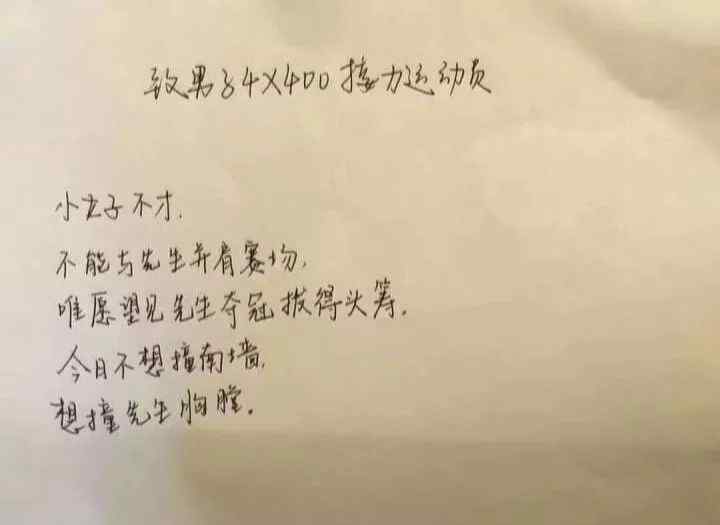 致男子4X400接力运动员
小女子不才，
不能与先生并肩赛场，
唯愿望见先生夺冠拔得头筹。
今日不想撞南墙，
想撞先生胸膛。